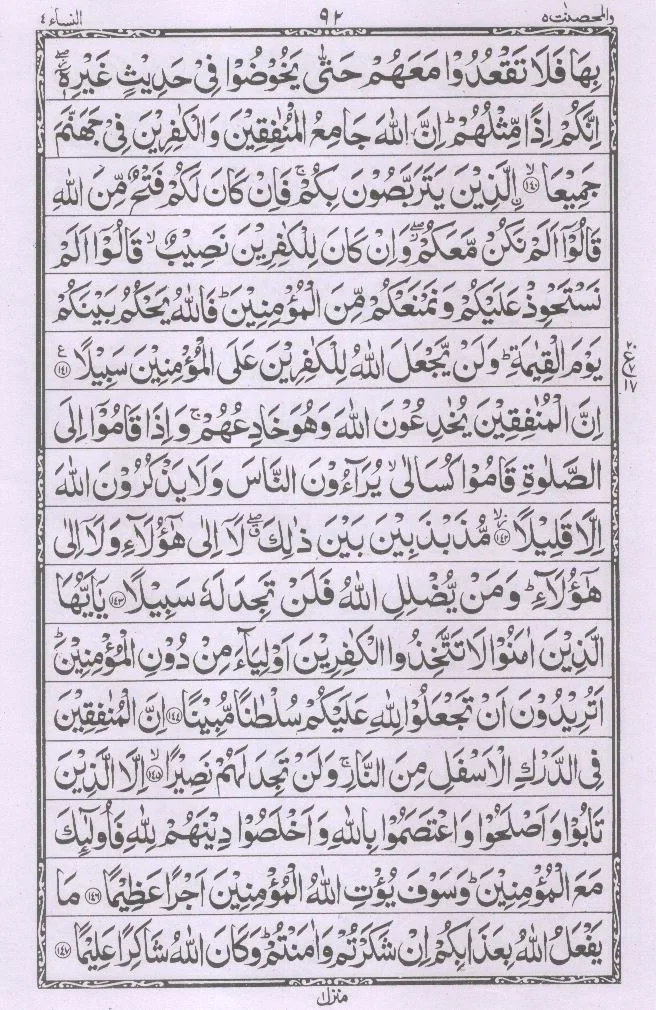 والمحصنت ٥ ٩٢ النساء ٤
بِهَا فَلَا تَقْعُدُوْا مَعَهُمْ حَتّٰى يَخُوْضُوْا فِىْ حَدِيْثٍ غَيْرِهٖۤ ۖ
اِنَّكُمْ اِذًا مِّثْلُهُمْ ؕ اِنَّ اللّٰهَ جَامِعُ الْمُنٰفِقِيْنَ وَالْكٰفِرِيْنَ فِىْ جَهَنَّمَ
جَمِيْعَا ۙ‏﴿۱۴۰﴾ اۨلَّذِيْنَ يَتَرَبَّصُوْنَ بِكُمْ ۚ فَاِنْ كَانَ لَكُمْ فَتْحٌ مِّنَ اللّٰهِ
قَالُوْۤا اَلَمْ نَكُنْ مَّعَكُمْ ۖ وَاِنْ كَانَ لِلْكٰفِرِيْنَ نَصِيْبٌ ۙ قَالُوْۤا اَلَمْ
نَسْتَحْوِذْ عَلَيْكُمْ وَنَمْنَعْكُمْ مِّنَ الْمُؤْمِنِيْنَ ؕ فَاللّٰهُ يَحْكُمُ بَيْنَكُمْ
يَوْمَ الْقِيٰمَةِ ؕ وَلَنْ يَّجْعَلَ اللّٰهُ لِلْكٰفِرِيْنَ عَلَى الْمُؤْمِنِيْنَ سَبِيْلًا ﴿۱۴۱﴾ ع
اِنَّ الْمُنٰفِقِيْنَ يُخٰدِعُوْنَ اللّٰهَ وَهُوَ خَادِعُهُمْ ۚ وَاِذَا قَامُوْۤا اِلَى
الصَّلٰوةِ قَامُوْا كُسَالٰى ۙ يُرَآءُوْنَ النَّاسَ وَلَا يَذْكُرُوْنَ اللّٰهَ
اِلَّا قَلِيْلًا ۙ ﴿۱۴۲﴾ مُّذَبْذَبِيْنَ بَيْنَ ذٰلِكَ ۖ لَاۤ اِلٰى هٰٓؤُلَآءِ وَلَاۤ اِلٰى
هٰٓؤُلَآءِ ؕ وَمَنْ يُّضْلِلِ اللّٰهُ فَلَنْ تَجِدَ لَهٗ سَبِيْلًا ﴿۱۴۳﴾ يٰۤاَيُّهَا
الَّذِيْنَ اٰمَنُوْا لَا تَتَّخِذُوا الْكٰفِرِيْنَ اَوْلِيَآءَ مِنْ دُوْنِ الْمُؤْمِنِيْنَ ؕ
اَتُرِيْدُوْنَ اَنْ تَجْعَلُوْا لِلّٰهِ عَلَيْكُمْ سُلْطٰنًا مُّبِيْنًا ﴿۱۴۴﴾ اِنَّ الْمُنٰفِقِيْنَ
فِى الدَّرْكِ الْاَسْفَلِ مِنَ النَّارِ ۚ وَلَنْ تَجِدَ لَهُمْ نَصِيْرًا ۙ ﴿۱۴۵﴾ اِلَّا الَّذِيْنَ
تَابُوْا وَاَصْلَحُوْا وَاعْتَصَمُوْا بِاللّٰهِ وَاَخْلَصُوْا دِيْنَهُمْ لِلّٰهِ فَاُولٰٓئِكَ
مَعَ الْمُؤْمِنِيْنَ ؕ وَسَوْفَ يُؤْتِ اللّٰهُ الْمُؤْمِنِيْنَ اَجْرًا عَظِيْمًا ﴿۱۴۶﴾ مَا
يَفْعَلُ اللّٰهُ بِعَذَابِكُمْ اِنْ شَكَرْتُمْ وَاٰمَنْتُمْ ؕ وَكَانَ اللّٰهُ شَاكِرًا عَلِيْمًا ﴿۱۴۷﴾
منزل